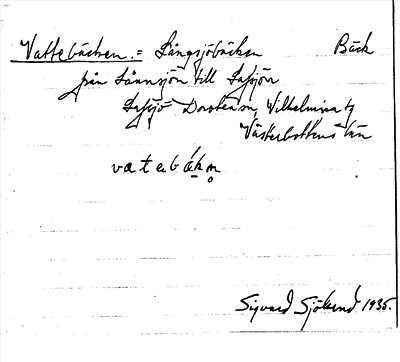 Vattebäcken. = Långsjöbäcken Bäck
från Lånnsjön till Lafsjön
Dorotea sn, Vilhelmina tg
Västerbottens län
vatebäkn
Sigvard Sjölund 1935.